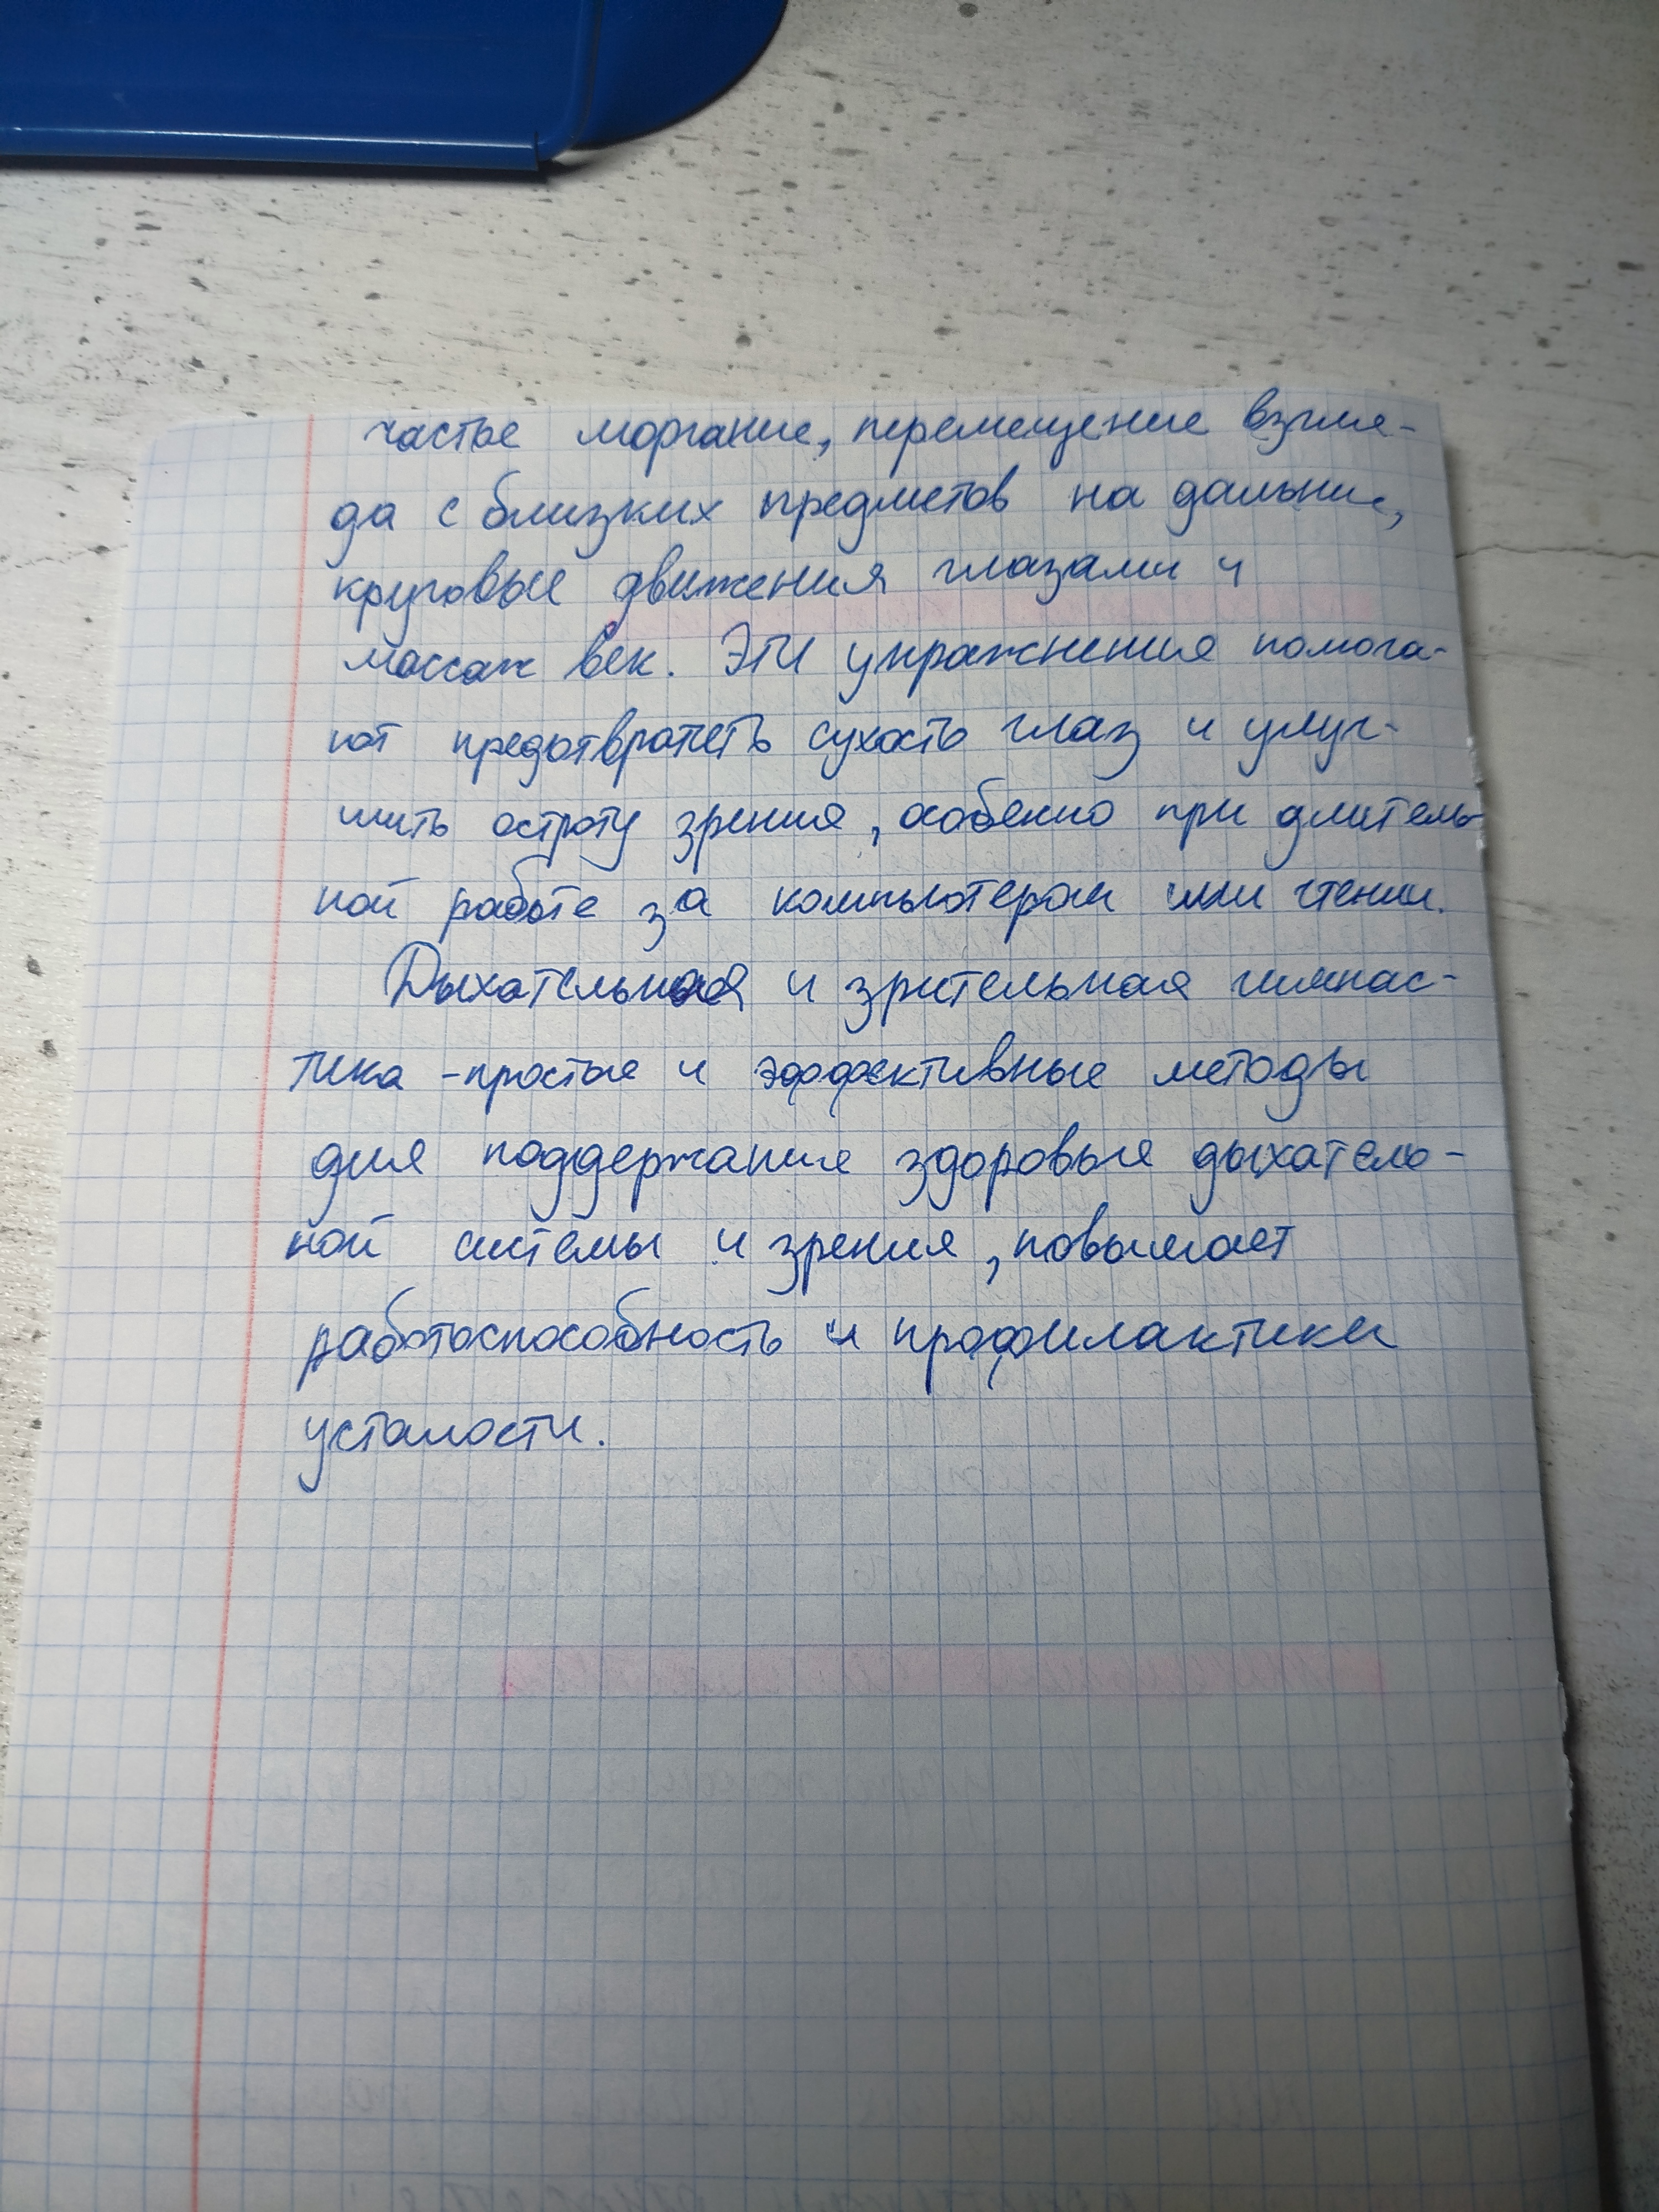 частое моргание, перемещение взгля-
да с близких предметов на дальние,
круговые движения глазами и
массаж век. Эти упражнения помога-
ют предотвратить сухость глаз и улуч-
шить остроту зрения, особенно при длитель-
ной работе за компьютером или чтении.
Дыхательная и зрительная гимнас-
тика - простые и эффективные методы
для поддержание здоровья дыхатель-
ной системы и зрения, повышает
работоспособность и профилактики
усталости.